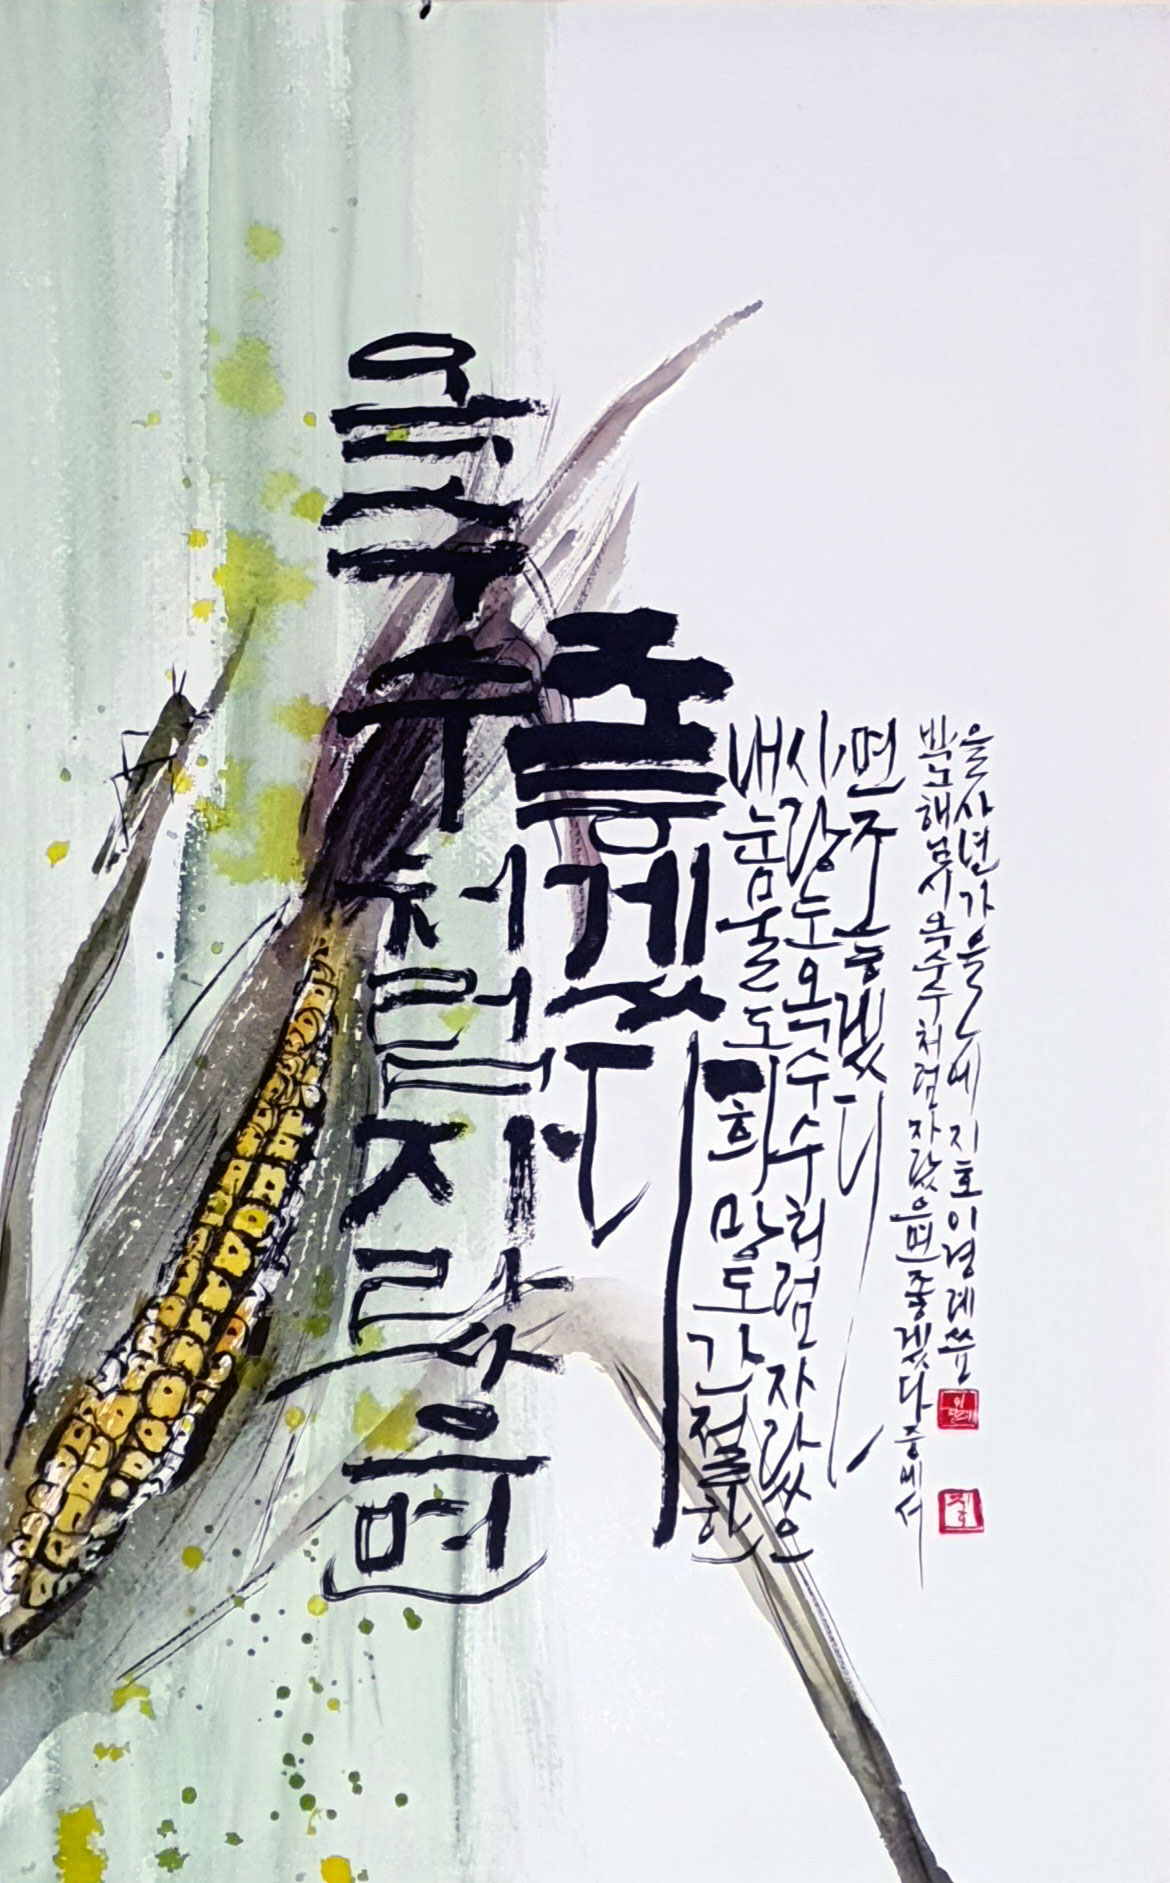 옥수수처럼 자랐으면
좋겠다
내 눈물도 희망도 간절한
사랑도 옥수수처럼 자랐으
면 좋겠다
박노해님 시 옥수수처럼 자랐으면 좋겠다 중에서
을사년 가을에 지호 이경례 씀